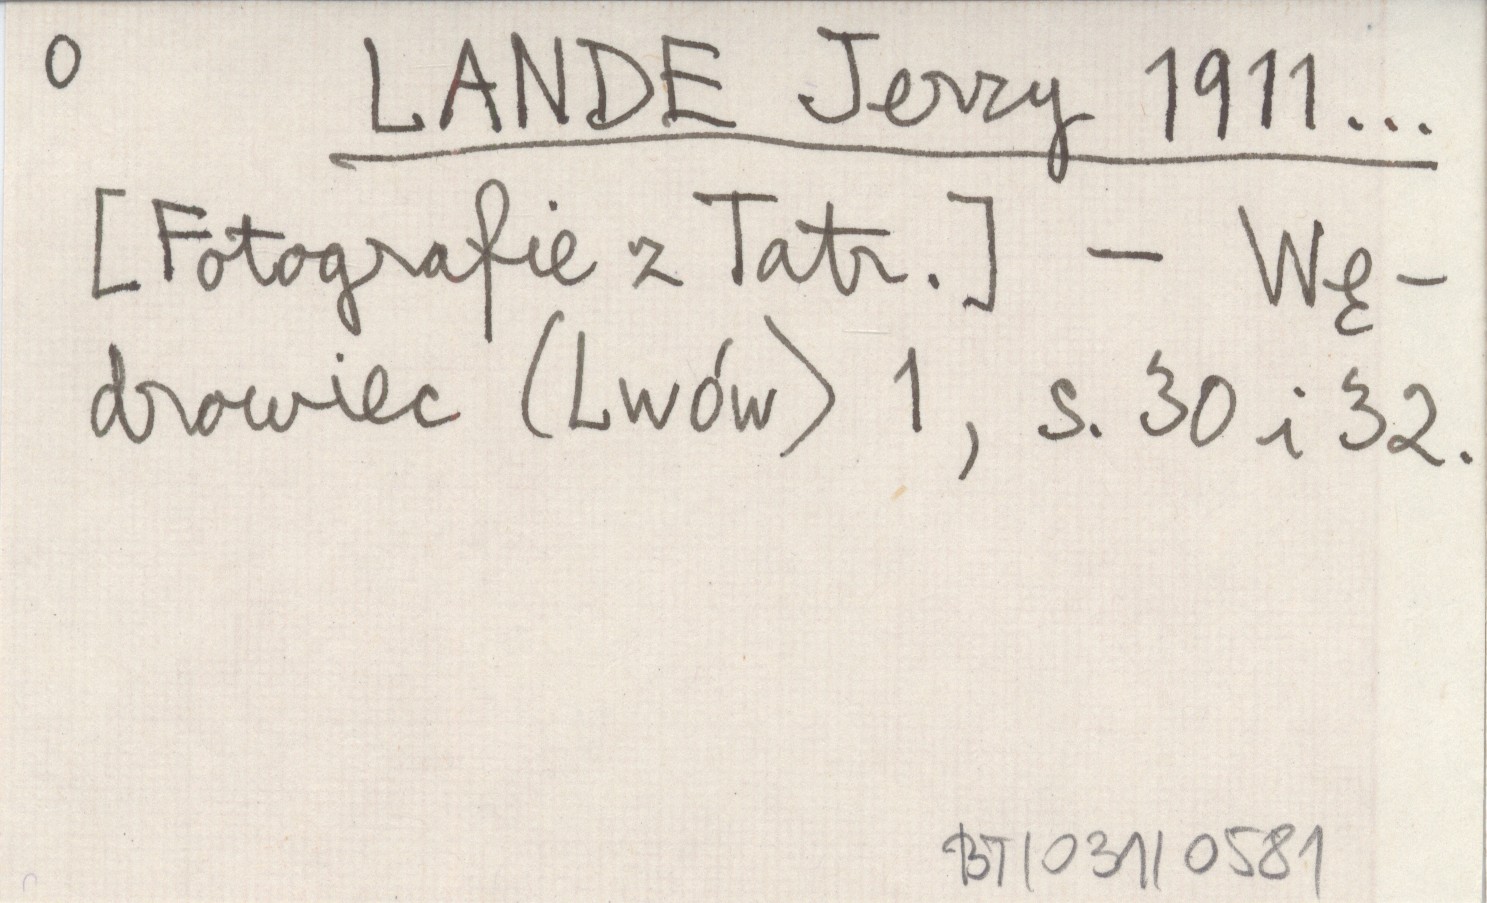 O LANDE Jerzy 1911...
[Fotografie z Tatr.] — Wę-
drowiec (Lwów) 1, s. 30 i 32.
BT/031/0581